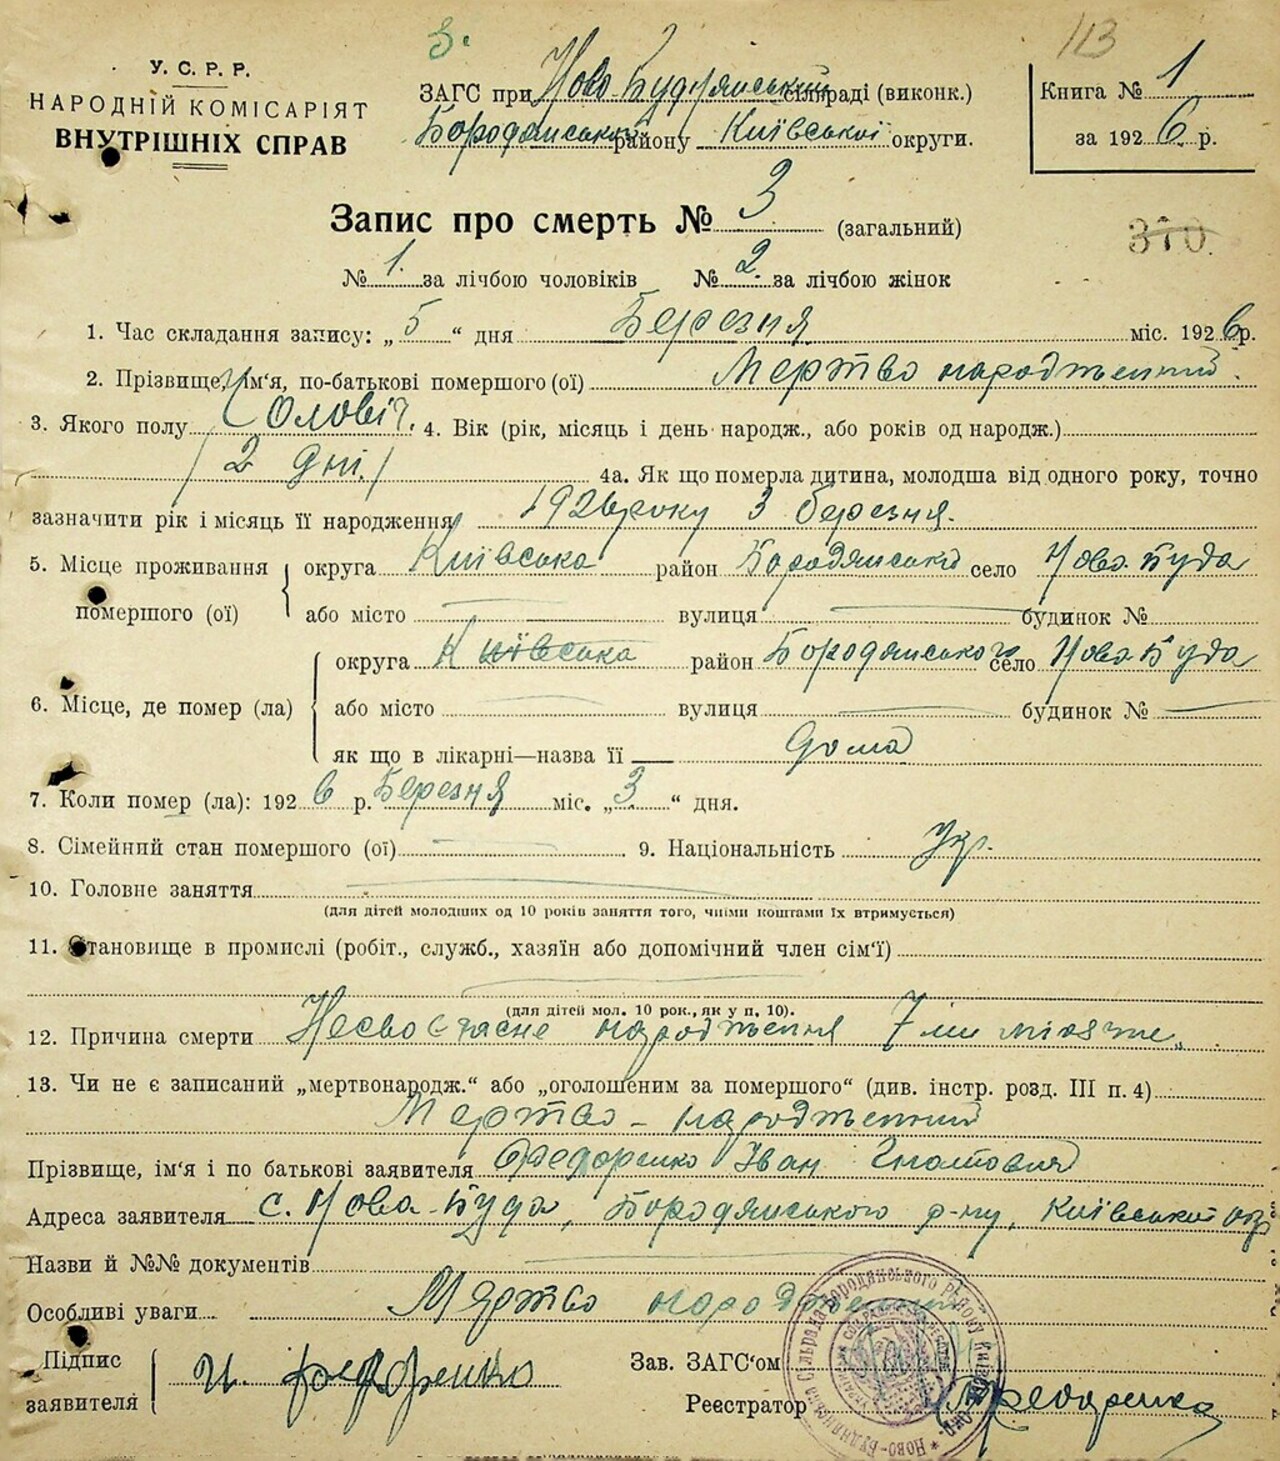 3.
113
У. С. Р. Р.
НАРОДНІЙ КОМІСАРІЯТ
ВНУТРІШНІХ СПРАВ
ЗАГС при Ново Будянський сільраді (виконк.)
Бородянського району Київської округи.
Книга № 1
за 1926 р.
Запис про смерть № 3 (загальний)
370
№ 1. за лічбою чоловіків № 2. за лічбою жінок
1. Час складання запису: „5“ дня Березня міс. 1926 р.
2. Прізвище, ім‘я, по-батькові помершого (ої) Мертво народженний.
3. Якого полу Чоловіч. 4. Вік (рік, місяць і день народж., або років од народж.)
/2 дні./ 4а. Як що померла дитина, молодша від одного року, точно
зазначити рік і місяць її народження 1926 року 3 березня.
5. Місце проживання помершого (ої) округа Київська район Бородянський село Нова-Буда
або місто вулиця будинок №
6. Місце, де помер (ла) округа Київська район Бородянського село Нова-Буда
або місто вулиця будинок №
як що в лікарні—назва її дома
7. Коли помер (ла): 1926 р. Березня міс. „3“ дня.
8. Сімейний стан помершого (ої) 9. Національність укр.
10. Головне заняття
(для дітей молодших од 10 років заняття того, чиїми коштами їх втримується)
11. Становище в промислі (робіт., служб., хазяїн або допомічний член сім‘ї)
(для дітей мол. 10 рок., як у п. 10).
12. Причина смерти Несвоєчасне народження 7 ми місячне.
13. Чи не є записаний „мертвонародж.“ або „оголошеним за помершого“ (див. інстр. розд. III п. 4)
Мертво-народженний
Прізвище, ім‘я і по батькові заявителя Федоренко Іван Гнатович
Адреса заявителя с. Нова-Буда, Бородянського р-ну, Київський окр
Назви й №№ документів
Особливі уваги Мяртво народженний
Підпис заявителя И. Федоренко
Зав. ЗАГС‘ом
Реєстратор Федоренко
Ново-Буднянська Сільрада Бородянського району Київ. Окр.